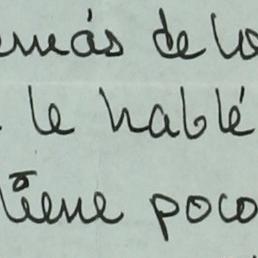 emás de lo
le hablé
tiene poco